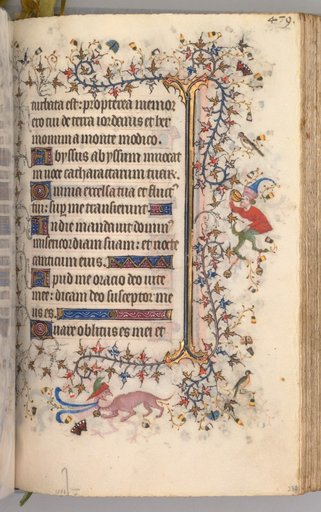 479.
turbata est: propterea memor
ero tui de terra iordanis et her
monium a monte modico.
Abyssus abyssum inuocat
in uoce catharactarum tuar.
Omnia excelsa tua et fluct
tui: super me transierunt
In die mandauit dominus
misericordiam suam: et nocte
canticum eius.
Apud me oracio deo uite
mee: dicam deo susceptor me
us es.
Quare oblitus es mei et